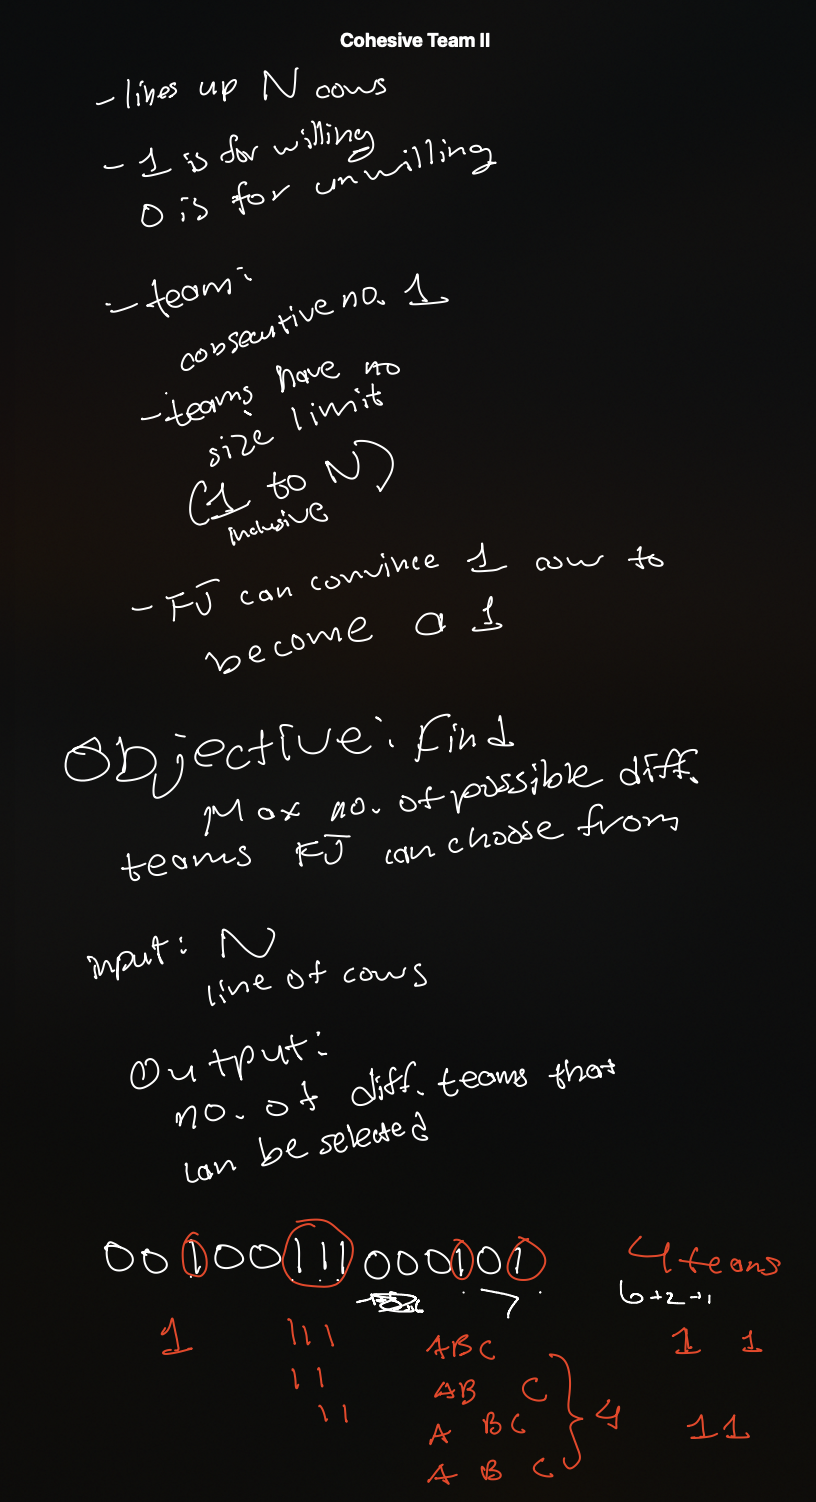 Cohesive Team II
- lines up N cows
- 1 is for willing
0 is for unwilling
- team:
consecutive no. 1
- teams have no
size limit
(1 to N)
inclusive
- FJ can convince 1 cow to
become a 1
Objective: Find
Max no. of possible diff.
teams FJ can choose from
input: N
line of cows
Output:
no. of diff. teams that
can be selected
00100111000101 4 teams
7 6+2+1
1 111 ABC 1 1
11 AB C
11 A BC } 4 11
A B C